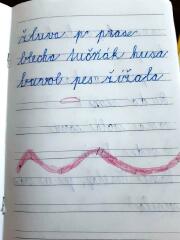 žluva p prase
blecha tučňák husa
buvol pes žížala